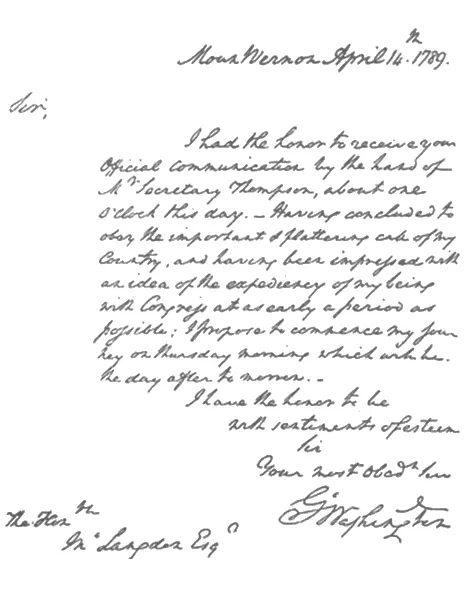 Mount Vernon April 14th. 1789.
Sir,
I had the honor to receive your
Official communication by the hand of
Mr Secretary Thompson, about one
o'clock this day. – Having concluded to
obey the important & flattering call of my
Country, and having been impressed with
an idea of the expediency of my being
with Congress at as early a period as
possible; I propose to commence my jour
ney on thursday morning which will be
the day after to morrow. –
I have the honor to be
with sentiments of esteem
Sir
Your most Obedt Ser
Go Washington
The Honble
Jno Langdon Esqr